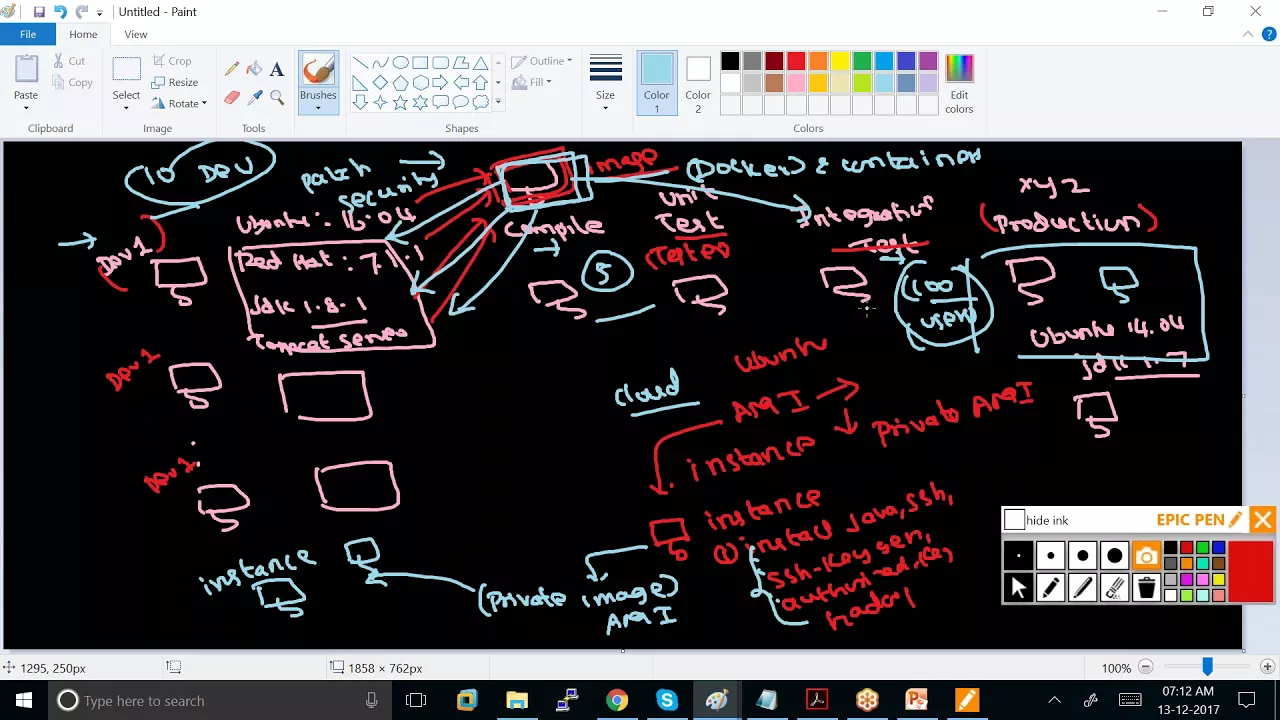 Untitled - Paint
File
Home
View
Paste
Cut
Copy
Clipboard
Select
Crop
Resize
Rotate
Image
Tools
Brushes
Shapes
Outline
Fill
Size
Color
1
Color
2
Colors
Edit
colors
10 DEV
patch
security
image
(Docker) & container
Ubuntu : 16.04
Compile
Unit
Test
(Tester)
Integration
Test
xyz
(Production)
Dev1
Red Hat : 7.1.1
Jdk 1.8.1
Tomcat server
5
(100
user
Ubuntu 14.04
jdk 1.7
Dev 1
cloud
Ubuntu
AMI
Private AMI
instance
Dev 1
instance
instance
(Private image)
AMI
① install Java, ssh,
ssh-keygen,
hide ink
EPIC PEN
1295, 250px
1858 × 762px
100%
Type here to search
07:12 AM
13-12-2017